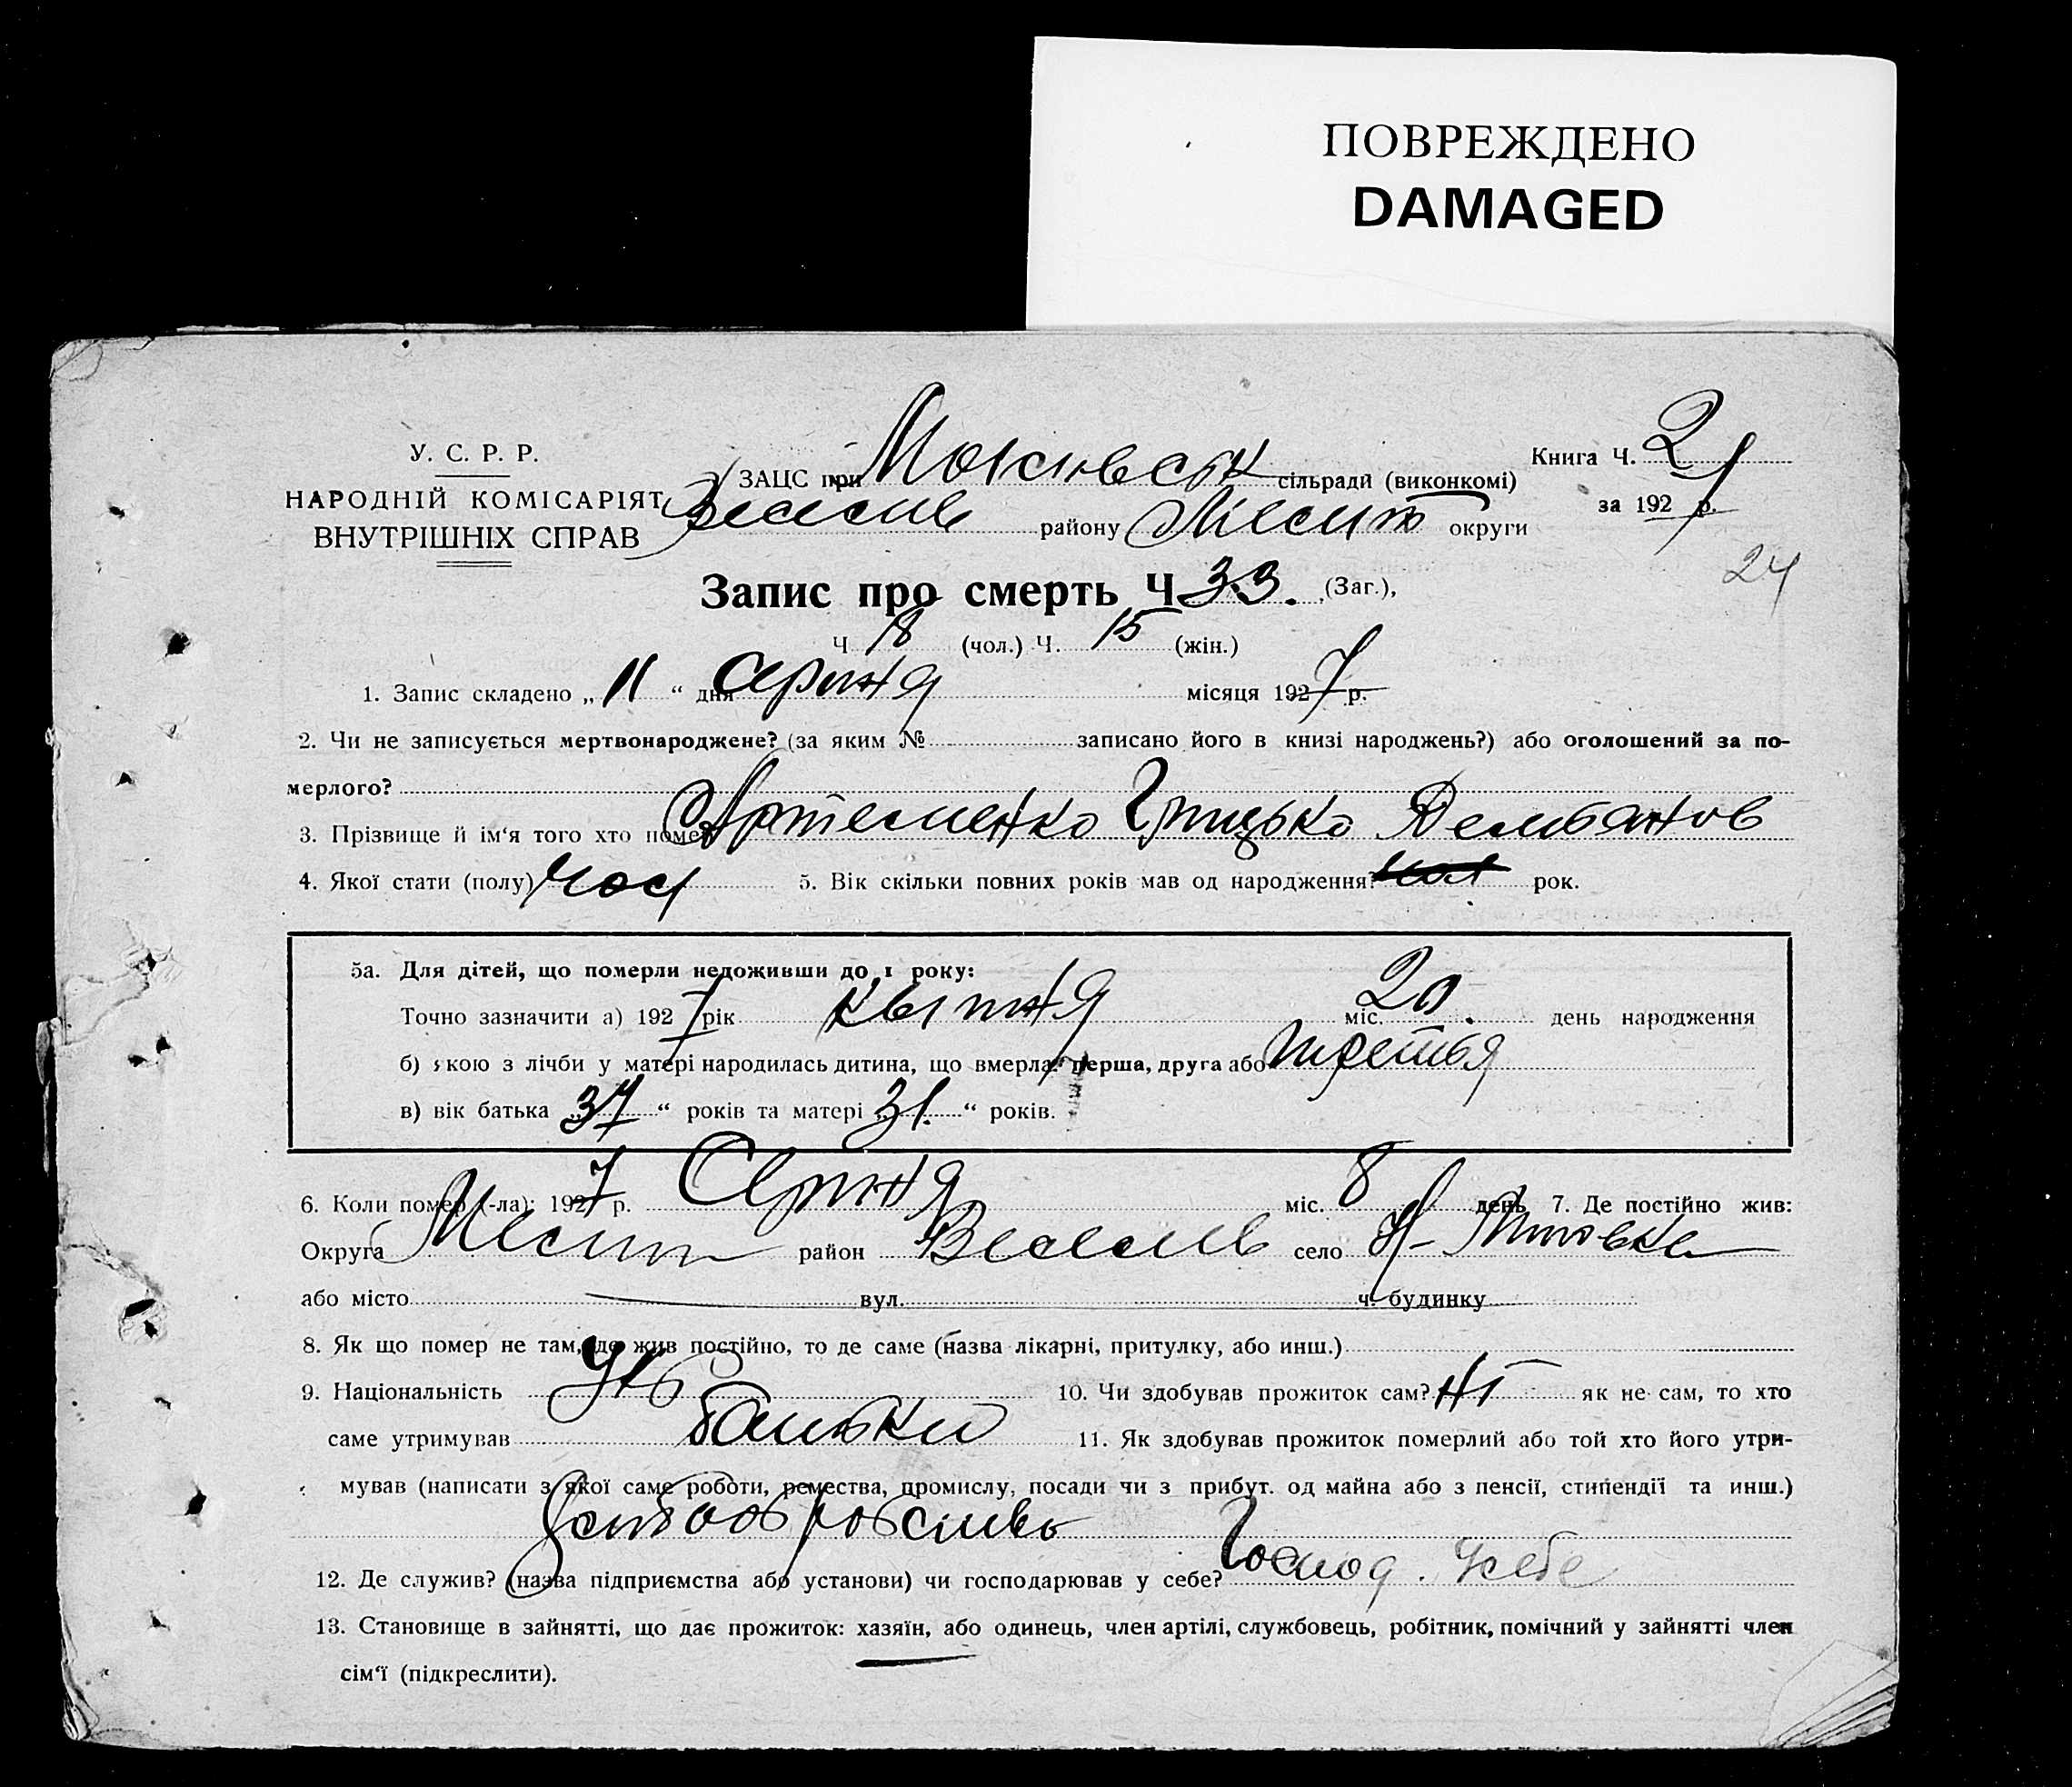 ПОВРЕЖДЕНО
DAMAGED
У. С. Р. Р.
НАРОДНІЙ КОМІСАРІЯТ
ВНУТРІШНІХ СПРАВ
ЗАЦС при сільради (виконкомі)
району Меліт округи
Книга Ч. 2
за 1927 р.
24
Запис про смерть Ч 33. (Заг.),
Ч 18 (чол.) Ч. 15 (жін.)
1. Запис складено „ 11 “ дня Серпня місяця 1927 р.
2. Чи не записується мертвонароджене? (за яким № записано його в книзі народжень?) або оголошений за по-
мерлого?
3. Прізвище й ім'я того хто помер Артеменко Грицько Демьянов
4. Якої стати (полу) Чол 5. Вік скільки повних років мав од народження? рок.
5а. Для дітей, що померли недоживши до 1 року:
Точно зазначити а) 1927 рік квітня міс. 20 день народження
б) якою з лічби у матері народилась дитина, що вмерла: перша, друга або третья
в) вік батька „ 37 “ років та матері „ 31 “ років.
6. Коли помер (-ла): 1927 р. Серпня міс. 8 день 7. Де постійно жив:
Округа Меліт район Веселів село
або місто вул. ч. будинку
8. Як що помер не там, де жив постійно, то де саме (назва лікарні, притулку, або инш.)
9. Національність Укр 10. Чи здобував прожиток сам? Ні як не сам, то хто
саме утримував батьки 11. Як здобував прожиток померлий або той хто його утри-
мував (написати з якої саме роботи, ремества, промислу, посади чи з прибут. од майна або з пенсії, стипендії та инш.)
12. Де служив? (назва підприємства або установи) чи господарював у себе? Господ. у себе
13. Становище в зайнятті, що дає прожиток: хазяїн, або одинець, член артілі, службовець, робітник, помічний у зайнятті член
сім'ї (підкреслити).